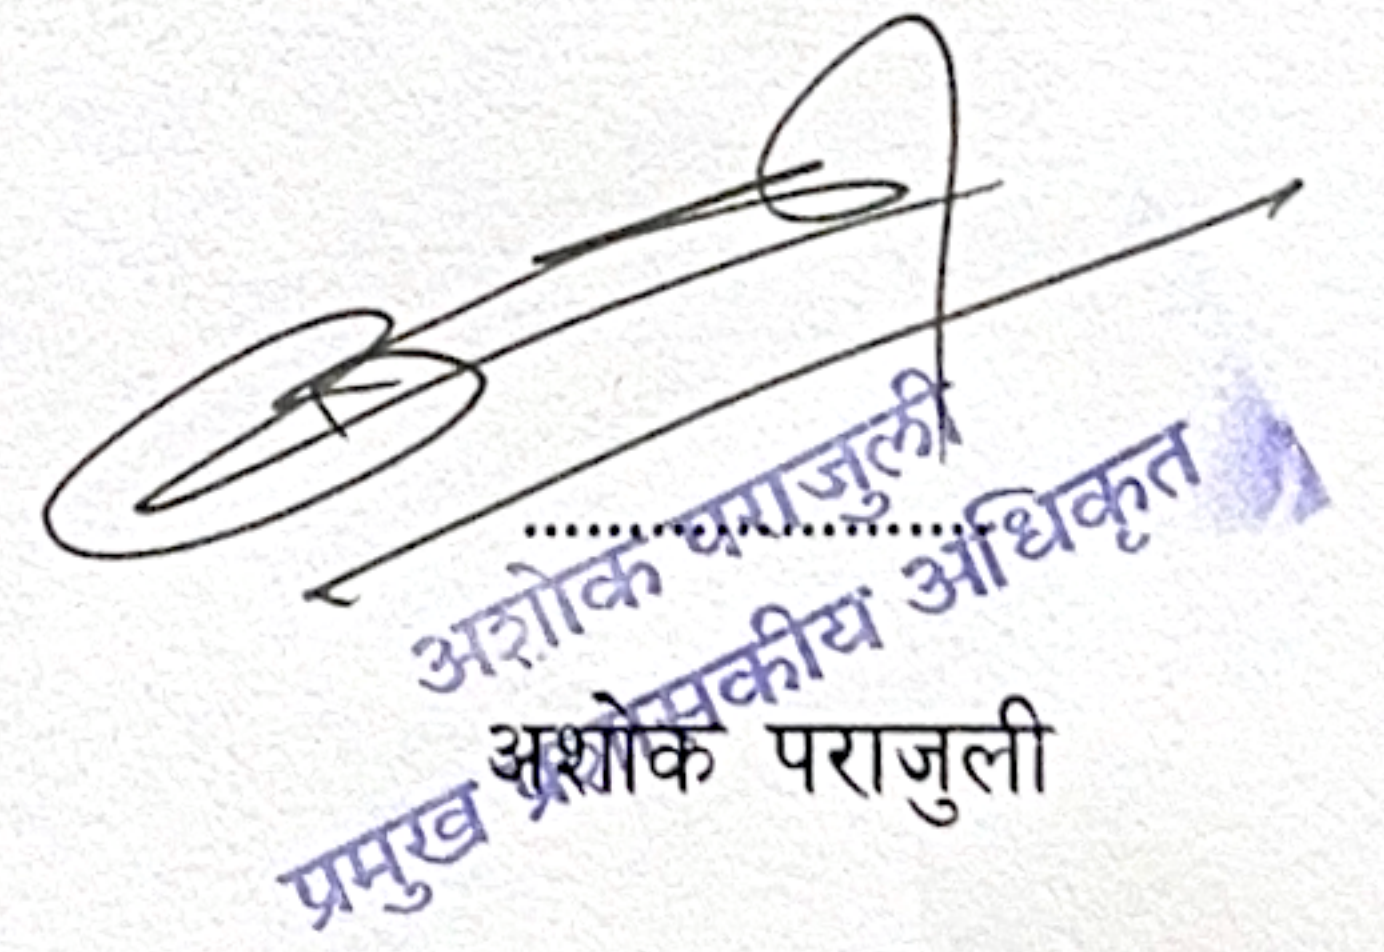 अशोक पराजुली
प्रमुख प्रशासकीय अधिकृत
अशोक पराजुली